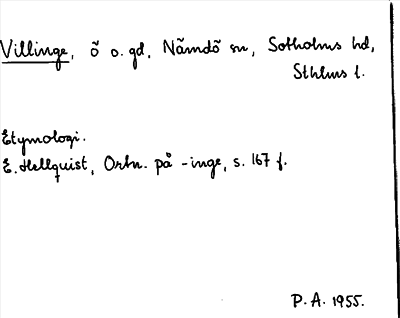 Villinge, ö o. gd, Nämdö sn, Sotholms hd,
Sthlms l.
Etymologi.
E. Hellquist, Ortn. på -inge, s. 167 f.
P. A. 1955.